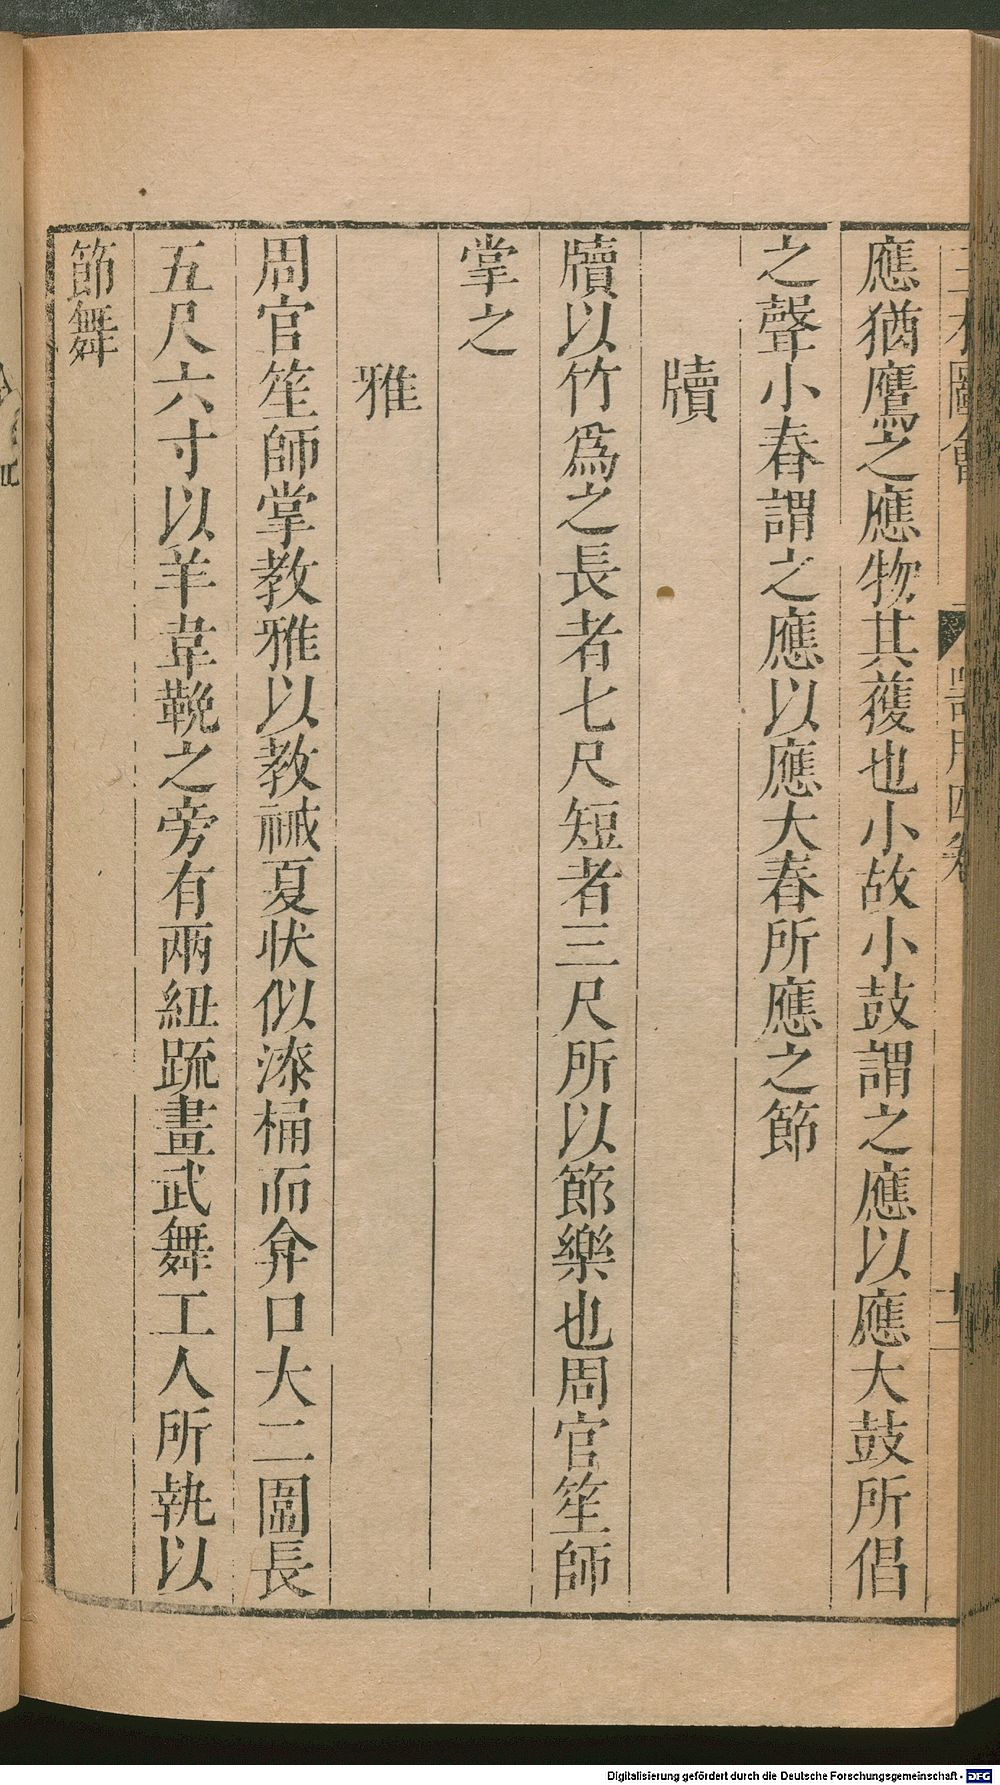 三才圖會 器用四卷 十二
應猶鷹之應物其獲也小故小鼓謂之應以應大鼓所倡
之聲小舂謂之應以應大舂所應之節
牘
牘以竹爲之長者七尺短者三尺所以節樂也周官笙師
掌之
雅
周官笙師掌教雅以教祴夏狀似漆桶而弇口大二圍長
五尺六寸以羊韋鞔之旁有兩紐䟽畫武舞工人所執以
節舞
Digitalisierung gefördert durch die Deutsche Forschungsgemeinschaft - DFG